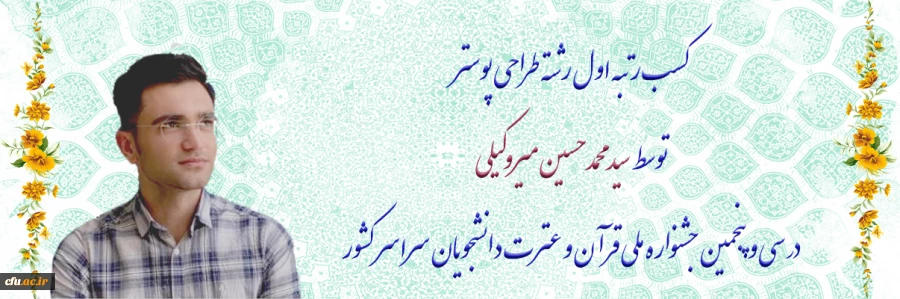 کسب رتبه اول رشته طراحی پوستر
توسط سید محمد حسین میروکیلی
در سی و پنجمین جشنواره ملی قرآن و عترت دانشجویان سراسر کشور
cfu.ac.ir